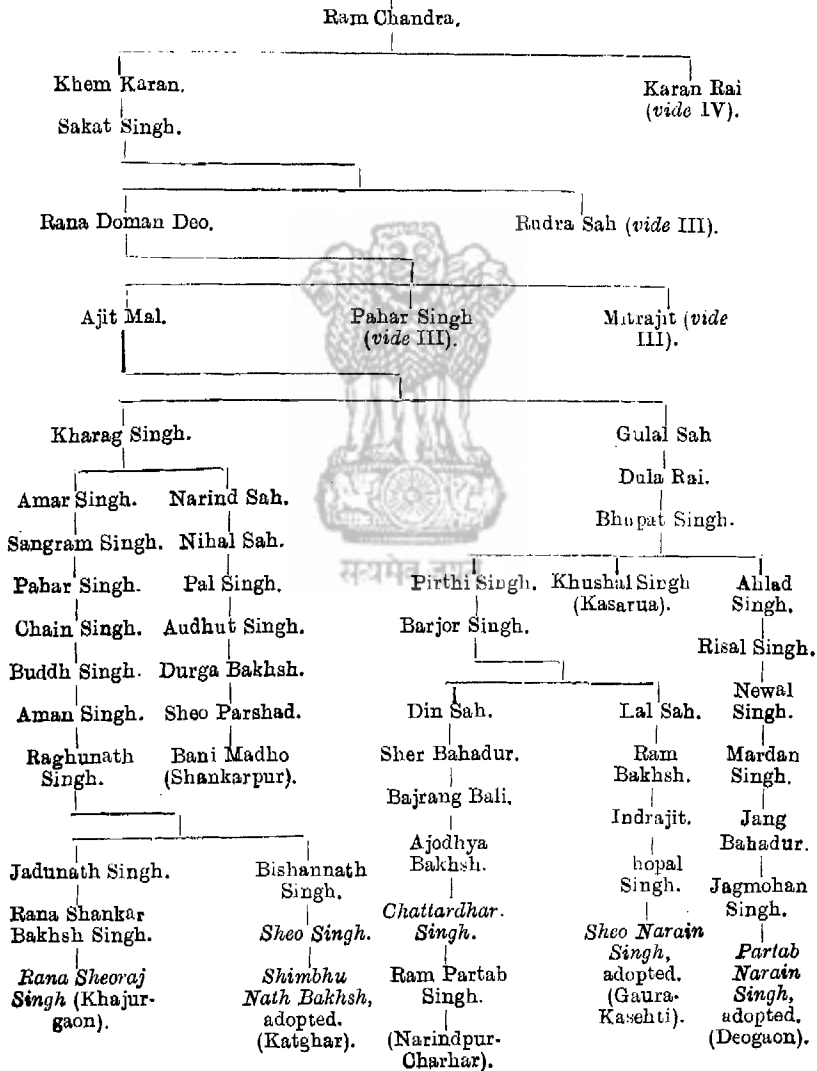 Ram Chandra.
Khem Karan.
Karan Rai
(vide IV).
Sakat Singh.
Rana Doman Deo.
Rudra Sah (vide III).
Ajit Mal.
Pahar Singh
(vide III).
Mitrajit (vide
III).
Kharag Singh.
Gulal Sah
Dula Rai.
Bhupat Singh.
Amar Singh.
Sangram Singh.
Pahar Singh.
Chain Singh.
Buddh Singh.
Aman Singh.
Raghunath
Singh.
Narind Sah.
Nihal Sah.
Pal Singh.
Audhut Singh.
Durga Bakhsh.
Sheo Parshad.
Bani Madho
(Shankarpur).
सत्यमेव जयते
Pirthi Singh.
Barjor Singh.
Khushal Singh
(Kasarua).
Ahlad
Singh.
Risal Singh.
Newal
Singh.
Mardan
Singh.
Jang
Bahadur.
Jagmohan
Singh.
Partab
Narain
Singh,
adopted.
(Deogaon).
Din Sah.
Sher Bahadur.
Bajrang Bali.
Ajodhya
Bakhsh.
Chattardhar
Singh.
Ram Partab
Singh.
(Narindpur-
Charhar).
Lal Sah.
Ram
Bakhsh.
Indrajit.
hopal
Singh.
Sheo Narain
Singh,
adopted.
(Gaura-
Kasehti).
Jadunath Singh.
Rana Shankar
Bakhsh Singh.
Rana Sheoraj
Singh (Khajur-
gaon).
Bishannath
Singh.
Sheo Singh.
Shimbhu
Nath Bakhsh,
adopted.
(Katghar).